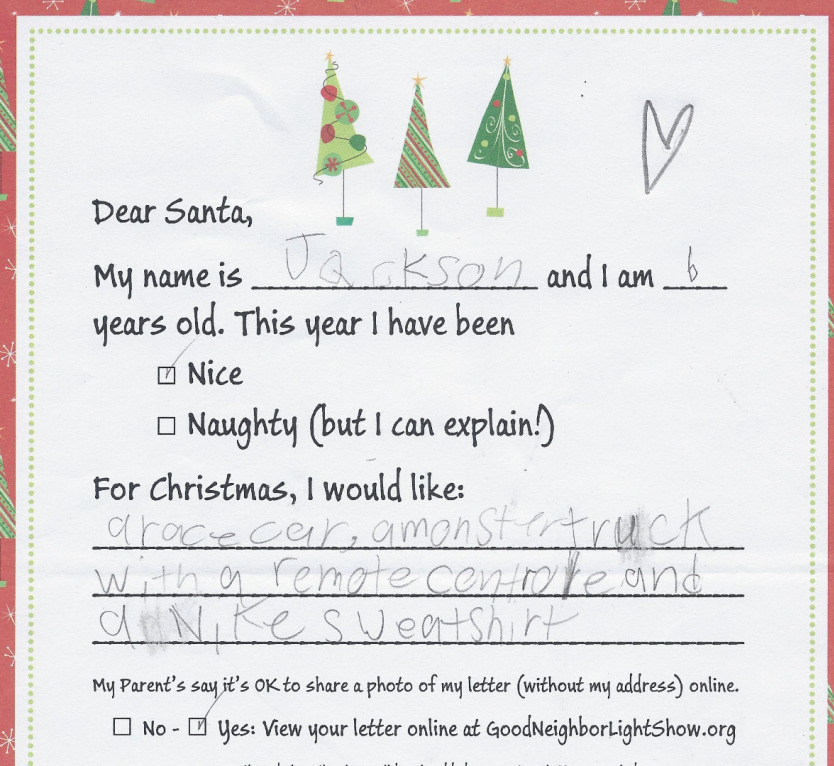 Dear Santa,
My name is Jackson and I am 6
years old. This year I have been
☑ Nice
☐ Naughty (but I can explain!)
For Christmas, I would like:
a race car, a monster truck
with a remote controle and
a Nike sweatshirt
My Parent's say it's OK to share a photo of my letter (without my address) online.
☐ No - ☑ Yes: View your letter online at GoodNeighborLightShow.org